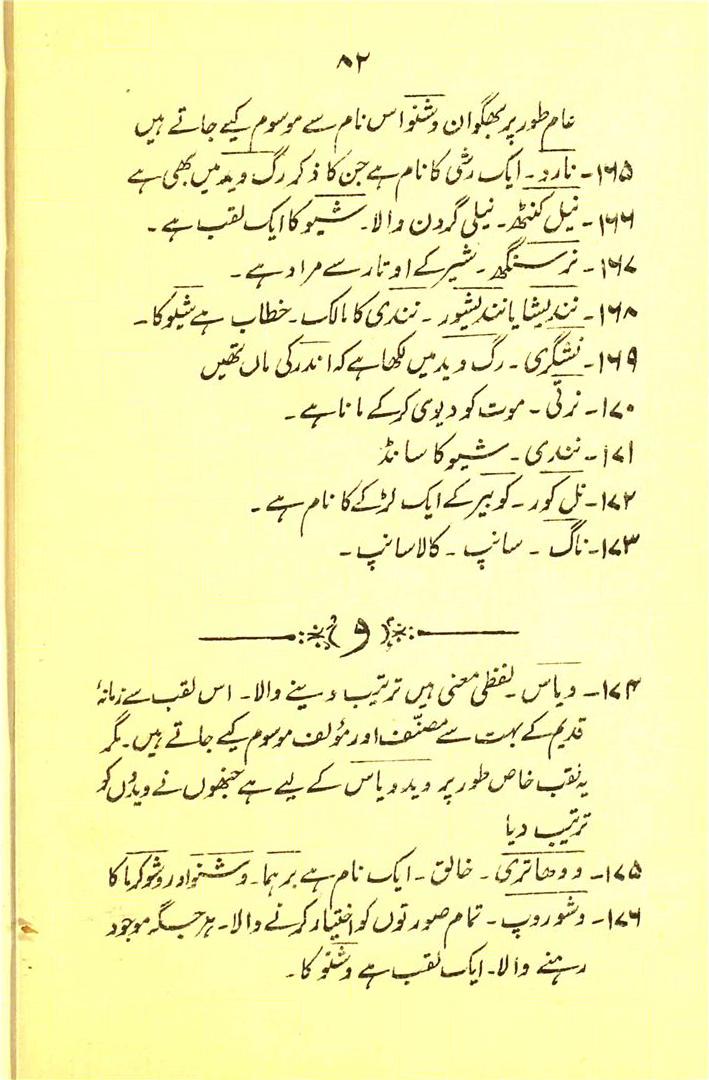 ۸۲
عام طور پر بھگوان وشنو اس نام سے موسوم کیے جاتے ہیں
۱۶۵- نارد۔ ایک رشی کا نام ہے جن کا ذکر رگ وید میں بھی ہے
۱۶۶- نیل کنٹھ۔ نیلی گردن والا۔ شیو کا ایک لقب ہے۔
۱۶۷- نرسنگھ۔ شیر کے اوتار سے مراد ہے۔
۱۶۸- نندیشا یا نندیشور۔ نندی کا مالک۔ خطاب ہے شیو کا۔
۱۶۹- نشٹگری۔ رگ وید میں لکھا ہے کہ اندر کی ماں تھیں
۱۷۰- نرتی۔ موت کو دیوی کر کے مانا ہے۔
۱۷۱- نندی۔ شیو کا سانڈ
۱۷۲- نل کور۔ کوبیر کے ایک لڑکے کا نام ہے۔
۱۷۳- ناگ۔ سانپ۔ کالا سانپ۔
و
۱۷۴- ویاس۔ لفظی معنی ہیں ترتیب دینے والا۔ اس لقب سے زمانۂ
قدیم کے بہت سے مصنّف اور مؤلف موسوم کیے جاتے ہیں۔ مگر
یہ لقب خاص طور پر وید ویاس کے لیے ہے جنھوں نے ویدوں کو
ترتیب دیا
۱۷۵- ودھاتری۔ خالق۔ ایک نام ہے برہما۔ وشنو اور وشوکرما کا
۱۷۶- وشوروپ۔ تمام صورتوں کو اختیار کرنے والا۔ ہر جگہ موجود
رہنے والا۔ ایک لقب ہے وشنو کا۔